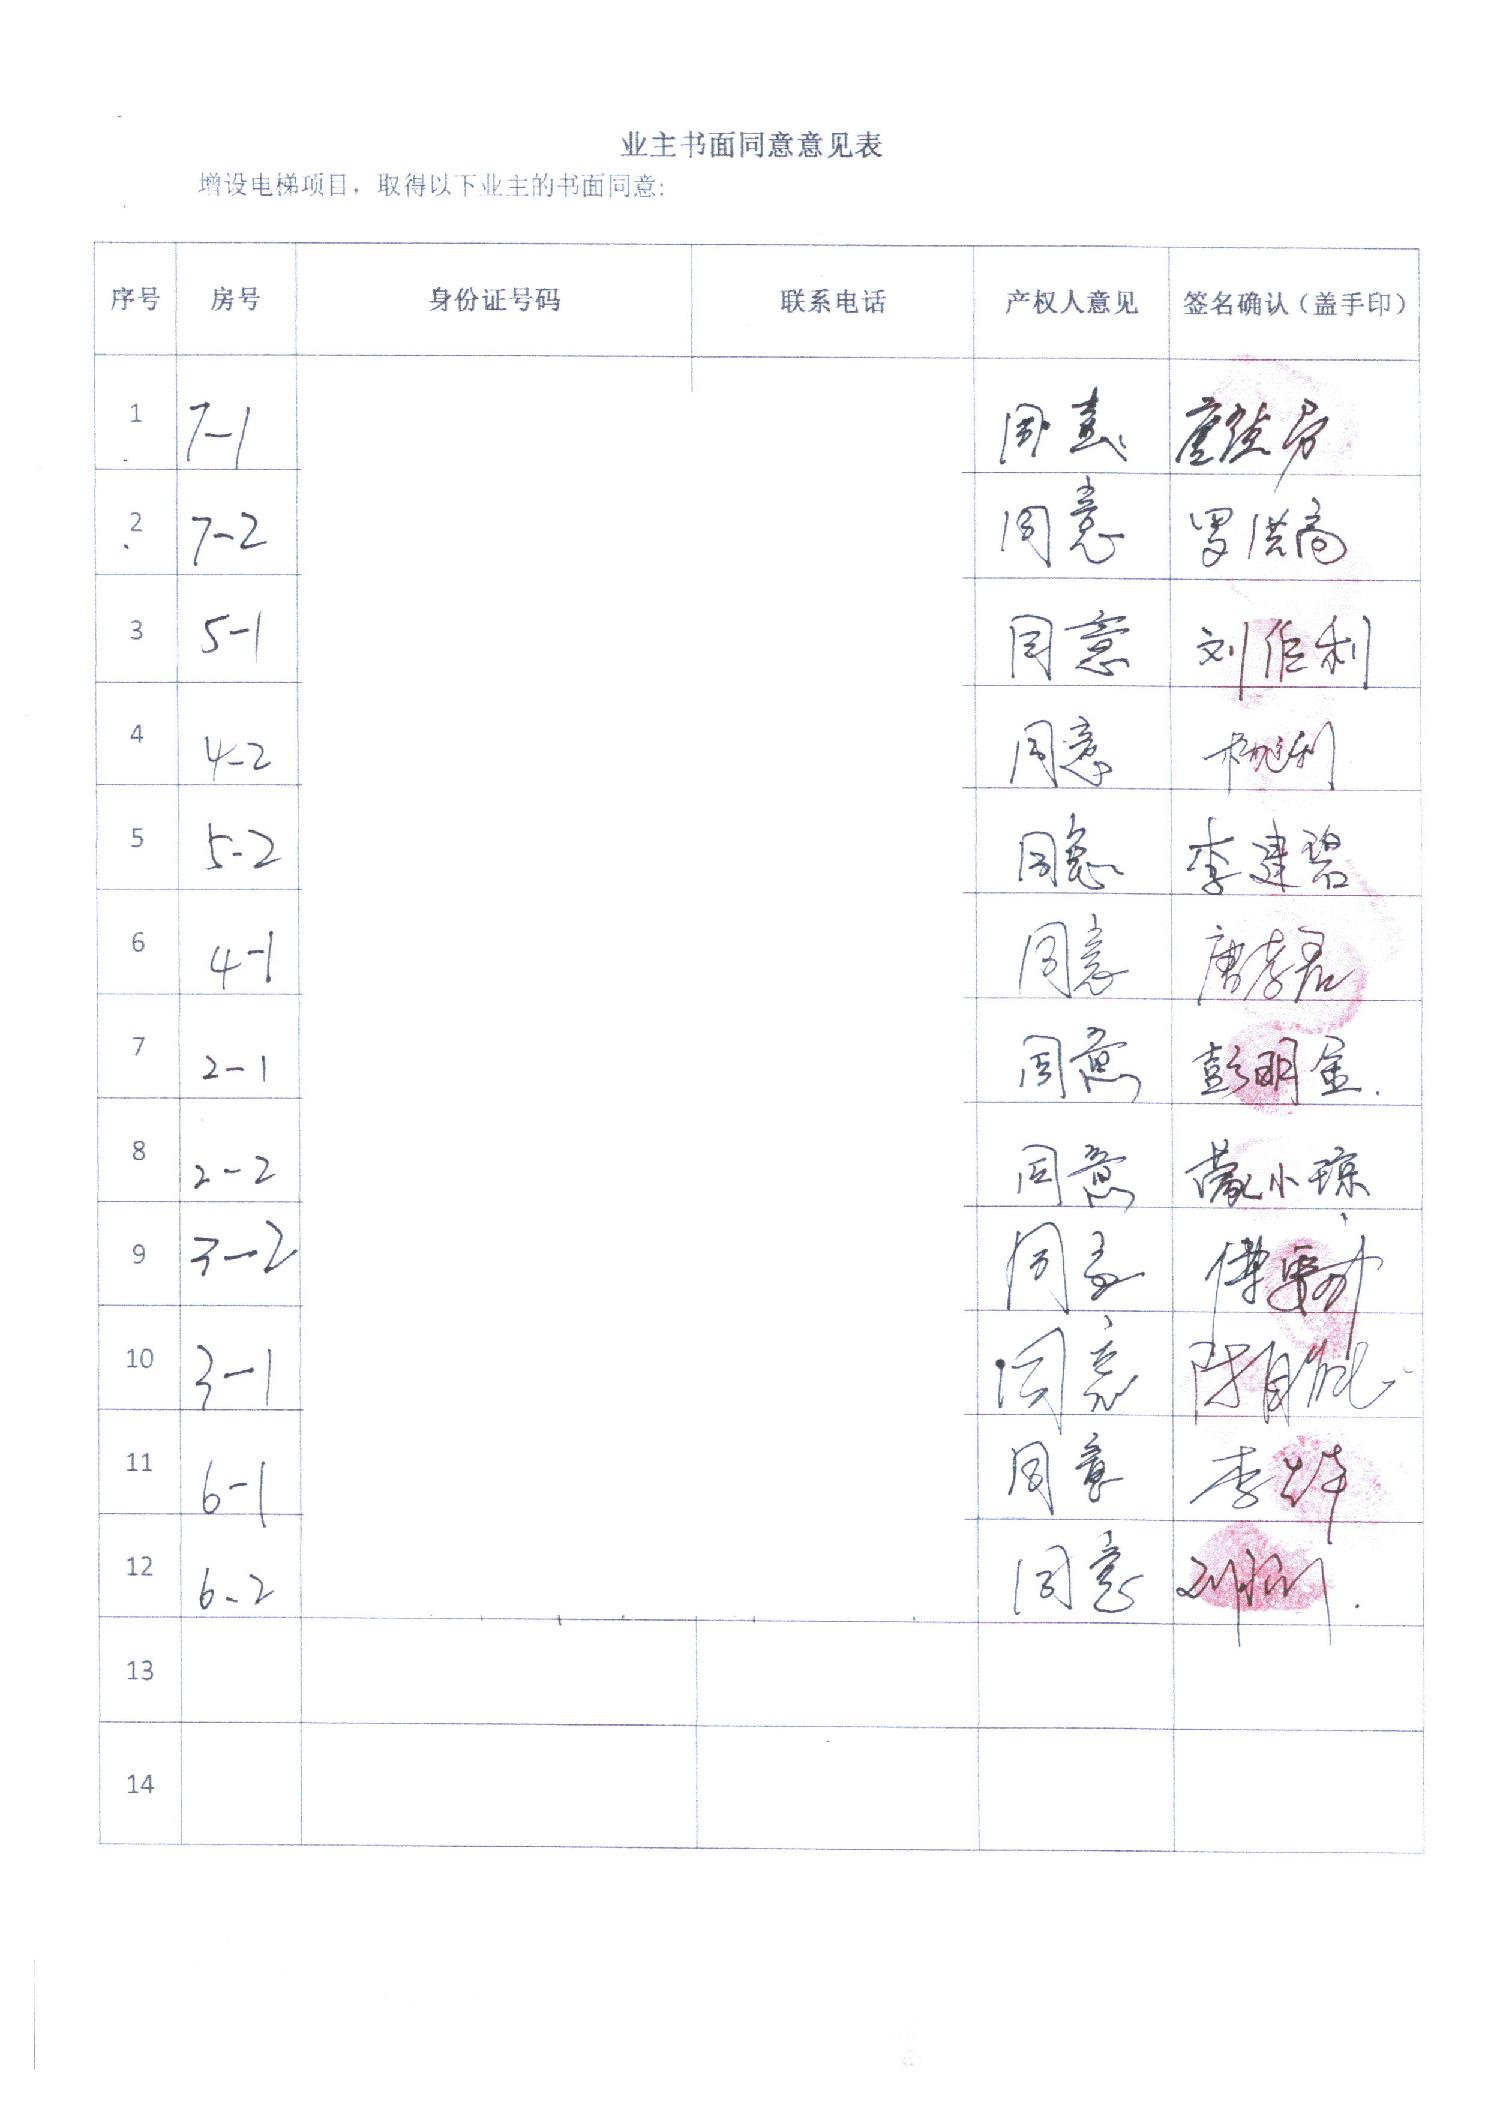 业主书面同意意见表
增设电梯项目，取得以下业主的书面同意:
序号 房号 身份证号码 联系电话 产权人意见 签名确认（盖手印）
1 7-1 同意
2 7-2 同意 罗洪高
3 5-1 同意 刘佐利
4 4-2 同意
5 5-2 同意 李建碧
6 4-1 同意 唐孝君
7 2-1 同意 彭明金.
8 2-2 同意 蒙小琼
9 3-2 同意
10 3-1 同意
11 6-1 同意 李
12 6-2 同意
13
14